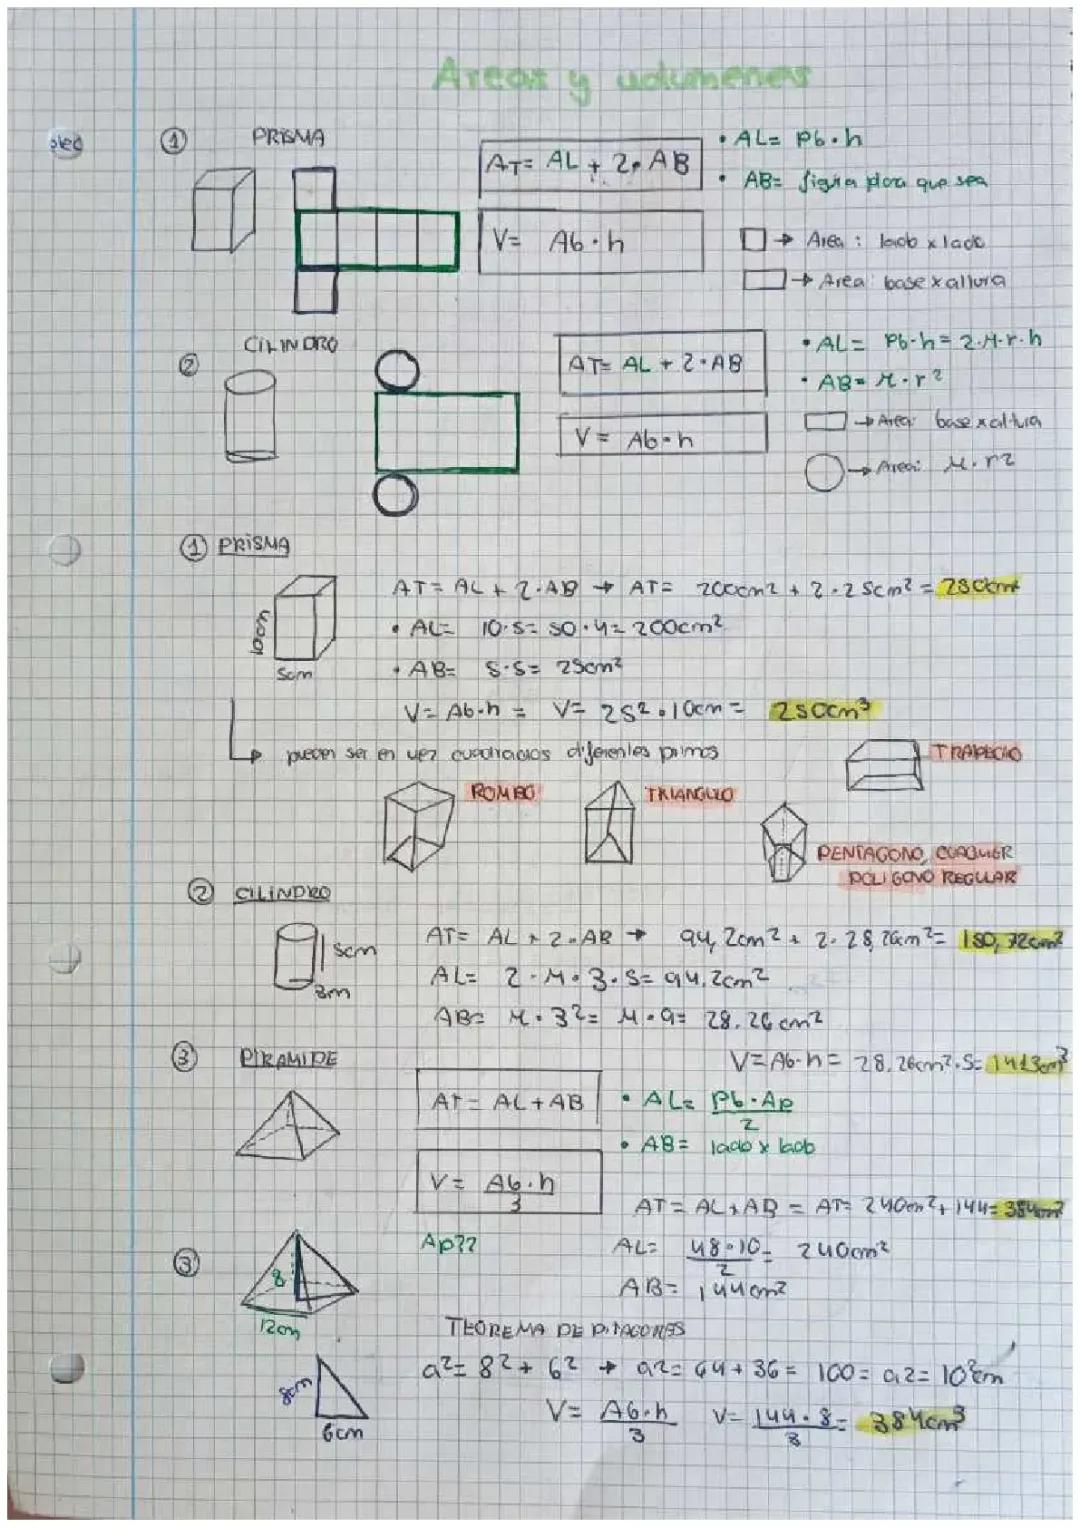 Areas y volumenes
① PRISMA
AT= AL + 2·AB
• AL= Pb·h
• AB= figura para que sea
V= Ab·h
→ Area: lado x lado
→ Area: base x altura
② CILINDRO
AT= AL + 2·AB
• AL= Pb·h= 2·π·r·h
• AB= π·r²
V= Ab·h
→ Area: base x altura
→ Area: π·r²
① PRISMA
AT= AL + 2·AB → AT= 200cm² + 2·25cm² = 250cm²
• AL= 10·5= 50·4= 200cm²
10cm
• AB= 5·5= 25cm²
5cm
V= Ab·h = V= 25²·10cm = 250cm³
↳ pueden ser en vez cuadrados diferentes primos
TRAPECIO
ROMBO
TRIANGULO
PENTAGONO, CUAQUIER
POLIGONO REGULAR
② CILINDRO
AT= AL + 2·AB → 94,2cm² + 2·28,26cm²= 150,72cm²
5cm
3m
AL= 2·π·3·5= 94,2cm²
AB= π·3²= π·9= 28.26cm²
V=Ab·h= 28,26cm²·5= 141,3cm³
③ PIRAMIDE
AT= AL+AB
• AL= Pb·Ap / 2
• AB= lado x lado
V= Ab·h / 3
AT= AL+AB = AT= 240cm²+144= 384cm²
③
8
12cm
Ap??
AL= 48·10 / 2 = 240cm²
AB= 144cm²
TEOREMA DE PITAGORES
a²= 8²+6² → a²= 64+36= 100= a2= 10²cm
8cm
6cm
V= Ab·h / 3 V= 144·8 / 3 = 384cm³